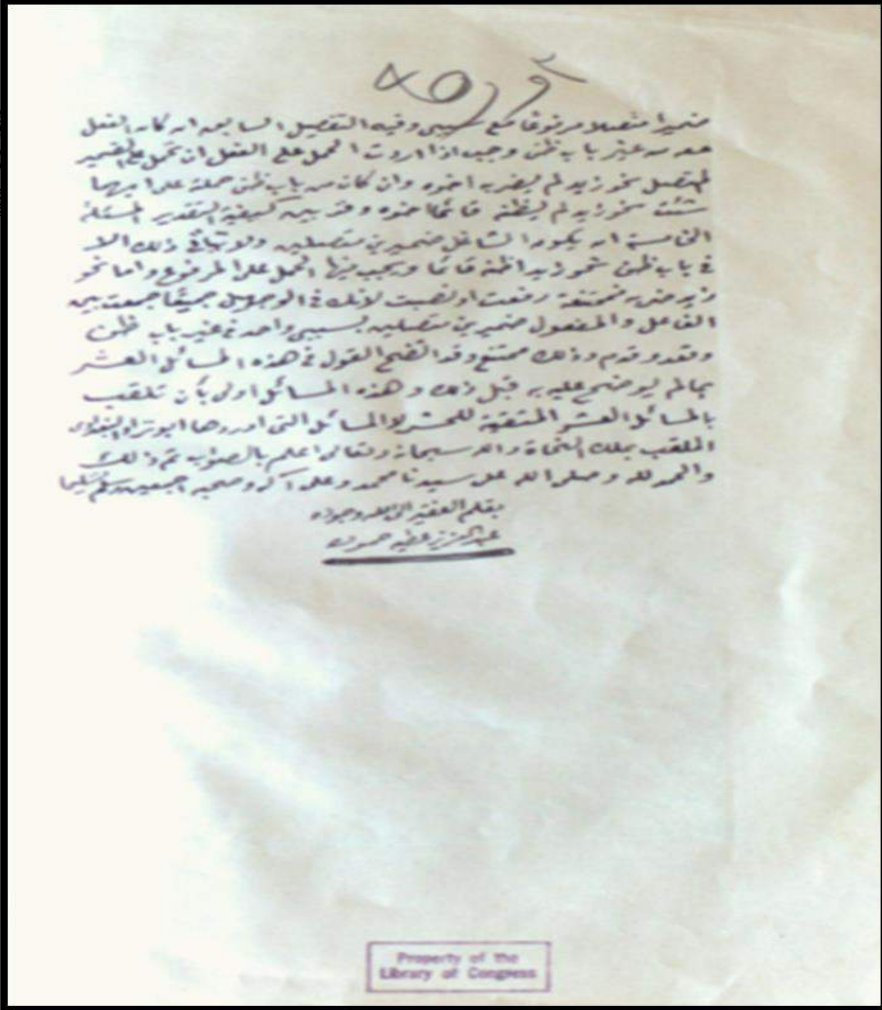 ضميرا متصلا مرفوعا مع سببى وفيه التفصيل السابق ان كان الفعل
من غير باب ظن وجب اذا اردت الحمل على الفعل ان تحمل على الضمير
المتصل نحو زيد لم يضربه اخوه وان كان من باب ظن حملته على ايهما
شئت نحو زيد لم يظنه قائما اخوه وقد بين كيفية التقدير المسئلة
الخامسة ان يكون الشاغل ضميرين متصلين ولا يتأتى ذلك الا
فى باب ظن نحو زيد اظنه قائما ويجب فيها الحمل على المرفوع واما نحو
زيد ضربه فممتنعة رفعت او نصبت لانك فى الوجهين جميعا جمعت بين
الفاعل والمفعول ضميرين متصلين لسببى واحد فى غير باب ظن
وفقد وعدم وذلك ممتنع وقد اتضح القول فى هذه المسائل العشر
بما لم يوضح عليه قبل ذلك وهذه المسائل اولى بأن تلقب
بالمسائل العشر للحشر لا المسائل التى اوردها ابو نزار البغدادى
الملقب بملك النحاة والله سبحانه وتعالى اعلم بالصواب تم ذلك
والحمد لله وصلى الله على سيدنا محمد وعلى آله وصحبه اجمعين وسلم تسليما
بقلم الفقير الى الله
عبد العزيز عطيه حموده
Property of the
Library of Congress